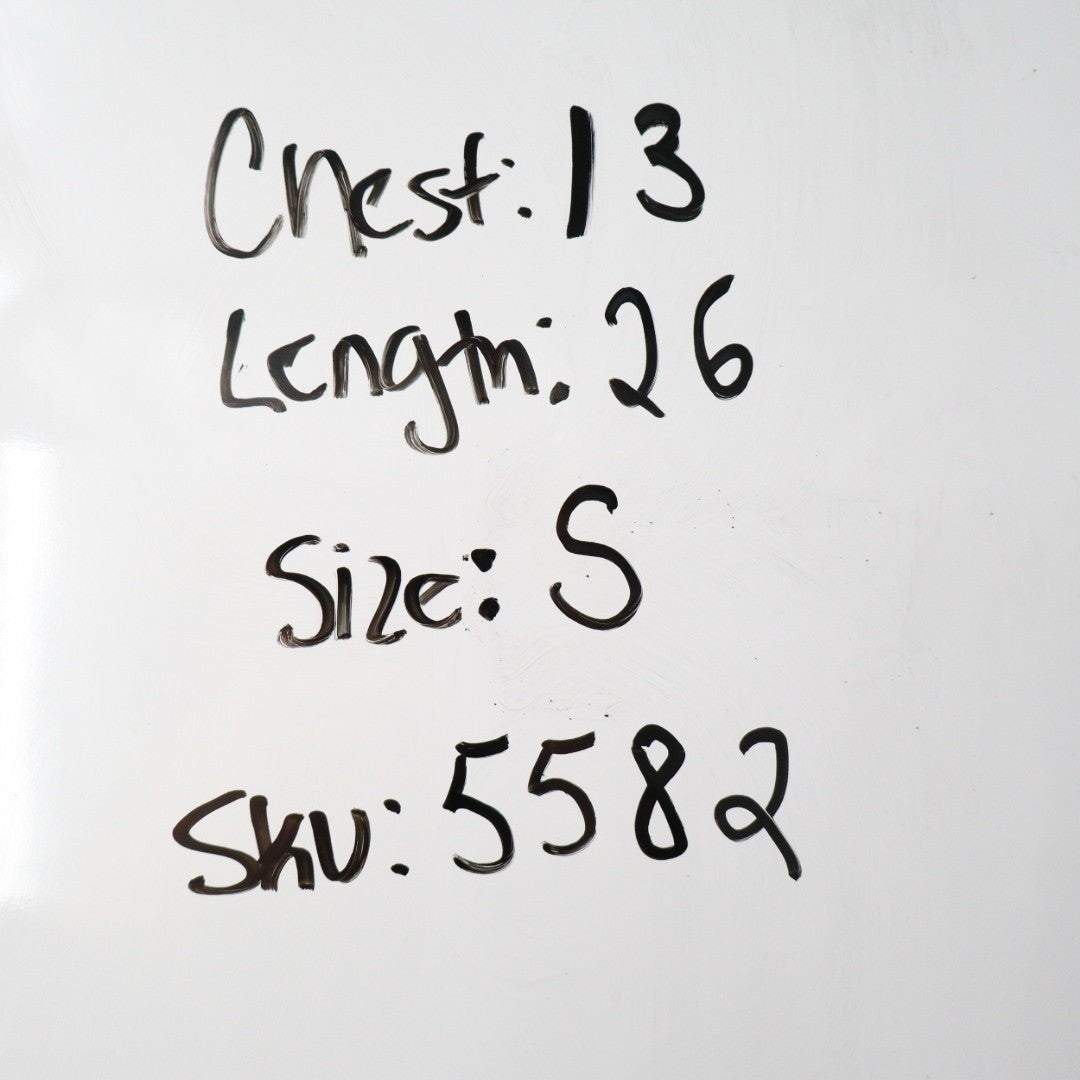 Chest: 13
Length: 26
Size: S
Sku: 5582